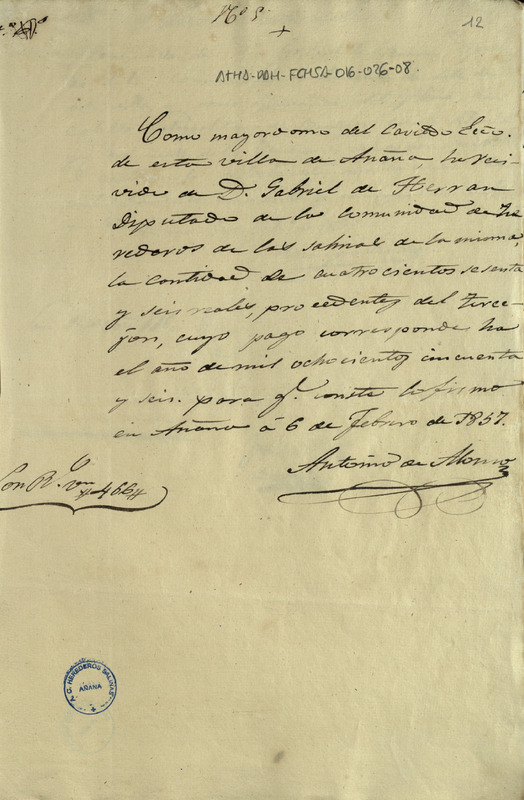 Nº 5.
12
+
ATHA-DAH-FCHSA-016-026-08.
Como mayordomo del Cavildo Ecco.
de esta villa de Añana he reci-
vido de D. Gabriel de Herran
Diputado de la Comunidad de He
rederos de las salinas de la misma,
la cantidad de cuatrocientos sesenta
y seis reales, procedentes del terce-
jon, cuyo pago corresponde ha
el año de mil ochocientos cincuenta
y seis. para qe. conste lo firmo
en Añana á 6 de Febrero de 1857.
Antonio de Alonso
Son Rs. von 466
A.C. HEREDEROS SALINAS
AÑANA